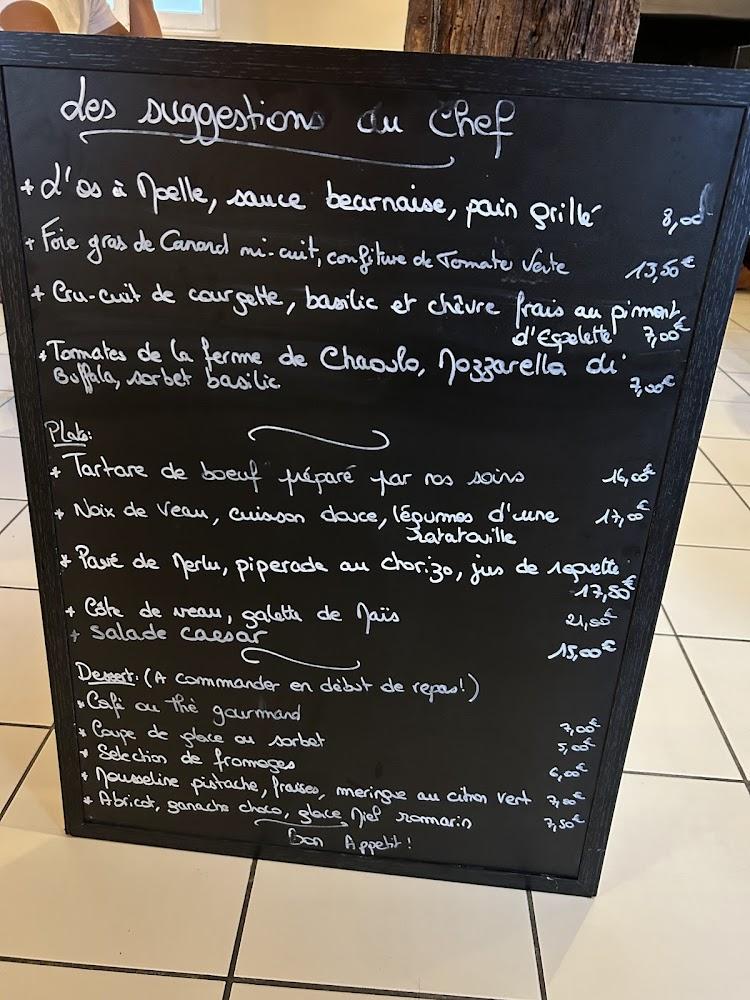 Les suggestions du Chef
+ L'os à Moelle, sauce bearnaise, pain grillé 8,00
+ Foie gras de Canard mi-cuit, confiture de Tomate Verte 13,50€
+ Cru-cuit de courgette, basilic et chèvre frais au piment
d'Espelette 7,00€
+ Tomates de la ferme de Chaoulo, Mozzarella di
Buffala, sorbet basilic 7,00€
Plats:
+ Tartare de boeuf préparé par nos soins 16,00€
+ Noix de Veau, cuisson douce, légumes d'une 17,00€
Ratatouille
+ Pavé de Merlu, piperade au chorizo, jus de roquette
17,80€
+ Côte de veau, galette de Maïs 21,50€
+ Salade caesar 15,00€
Dessert: (A commander en début de repas!)
+ Café ou thé gourmand 7,00€
+ Coupe de glace ou sorbet 5,00€
+ Sélection de fromages 6,00€
+ Mousseline pistache, fraises, meringue au citron vert 7,00€
+ Abricot, ganache choco, glace Miel romarin 7,50€
Bon Appetit!